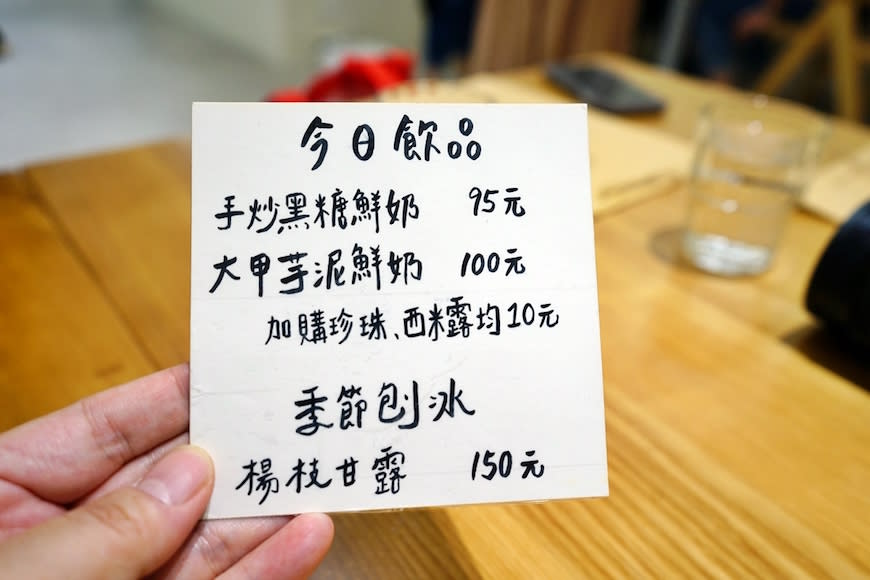 今日飲品
手炒黑糖鮮奶 95元
大甲芋泥鮮奶 100元
加購珍珠、西米露均10元
季節刨冰
楊枝甘露 150元